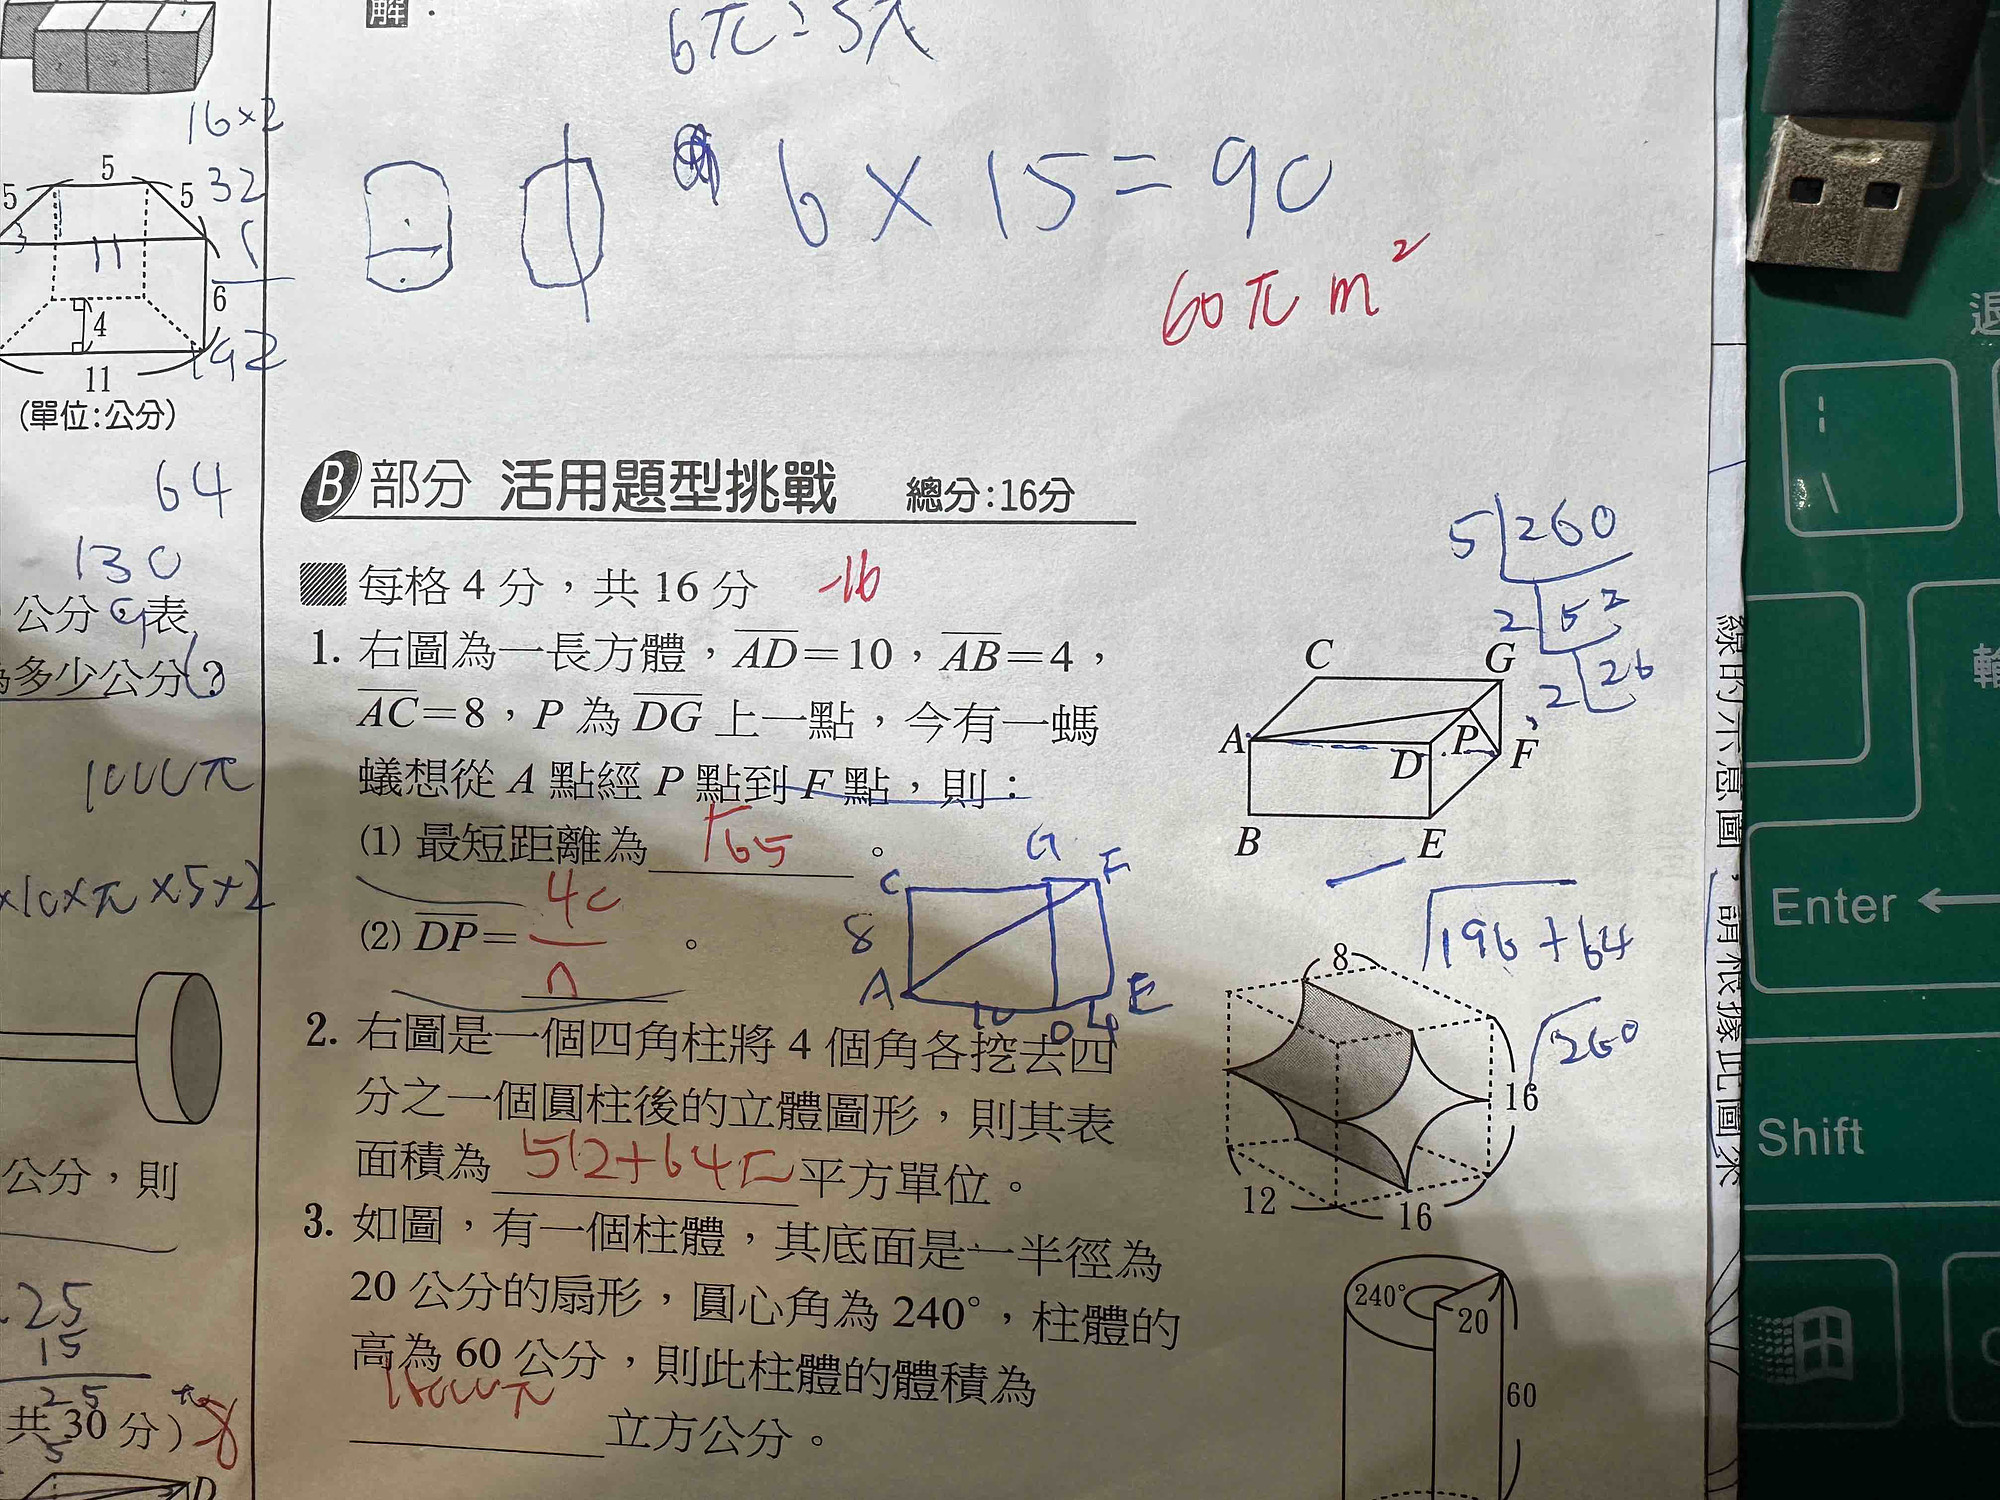 解
6π=5π
16×2
5
5
5
32
6×15=90
3
11
5
6
4
192
11
60π m²
(單位:公分)
64
B 部分 活用題型挑戰 總分:16分
130
5 260
每格 4 分，共 16 分 -16
公分
表
2 52
2 26
多少公分?
1. 右圖為一長方體，AD=10，AB=4，
AC=8，P 為 DG 上一點，今有一螞
蟻想從 A 點經 P 點到 F 點，則：
C G
A D P F
B E
1000π
(1) 最短距離為
。
×10×π×5×2
(2) DP=
。
40
C G F
8
A 10 D 4 E
√196+64
√260
2. 右圖是一個四角柱將 4 個角各挖去四
分之一個圓柱後的立體圖形，則其表
面積為 512+64π 平方單位。
8
16
12
16
公分，則
3. 如圖，有一個柱體，其底面是一半徑為
20 公分的扇形，圓心角為 240°，柱體的
高為 60 公分，則此柱體的體積為
16000π 立方公分。
240°
20
60
25
15
25
共 30 分) 8
5
D
線的示意圖，請根據此圖來
Enter
Shift